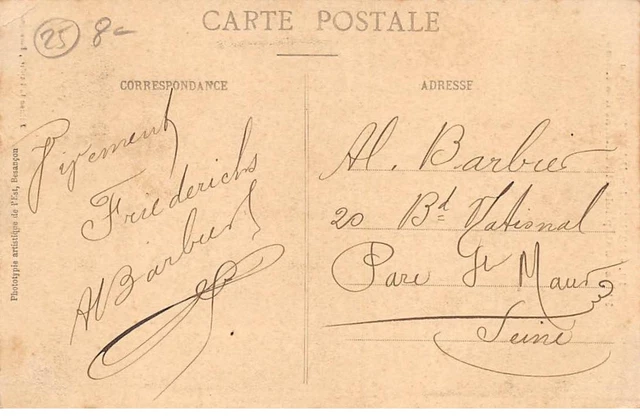 25 8-
CARTE POSTALE
CORRESPONDANCE
ADRESSE
Friederichs
A Barbier
Al. Barbier
20 Bd National
Parc St Maur
Seine
Phototypie artistique de l'Est, Besançon